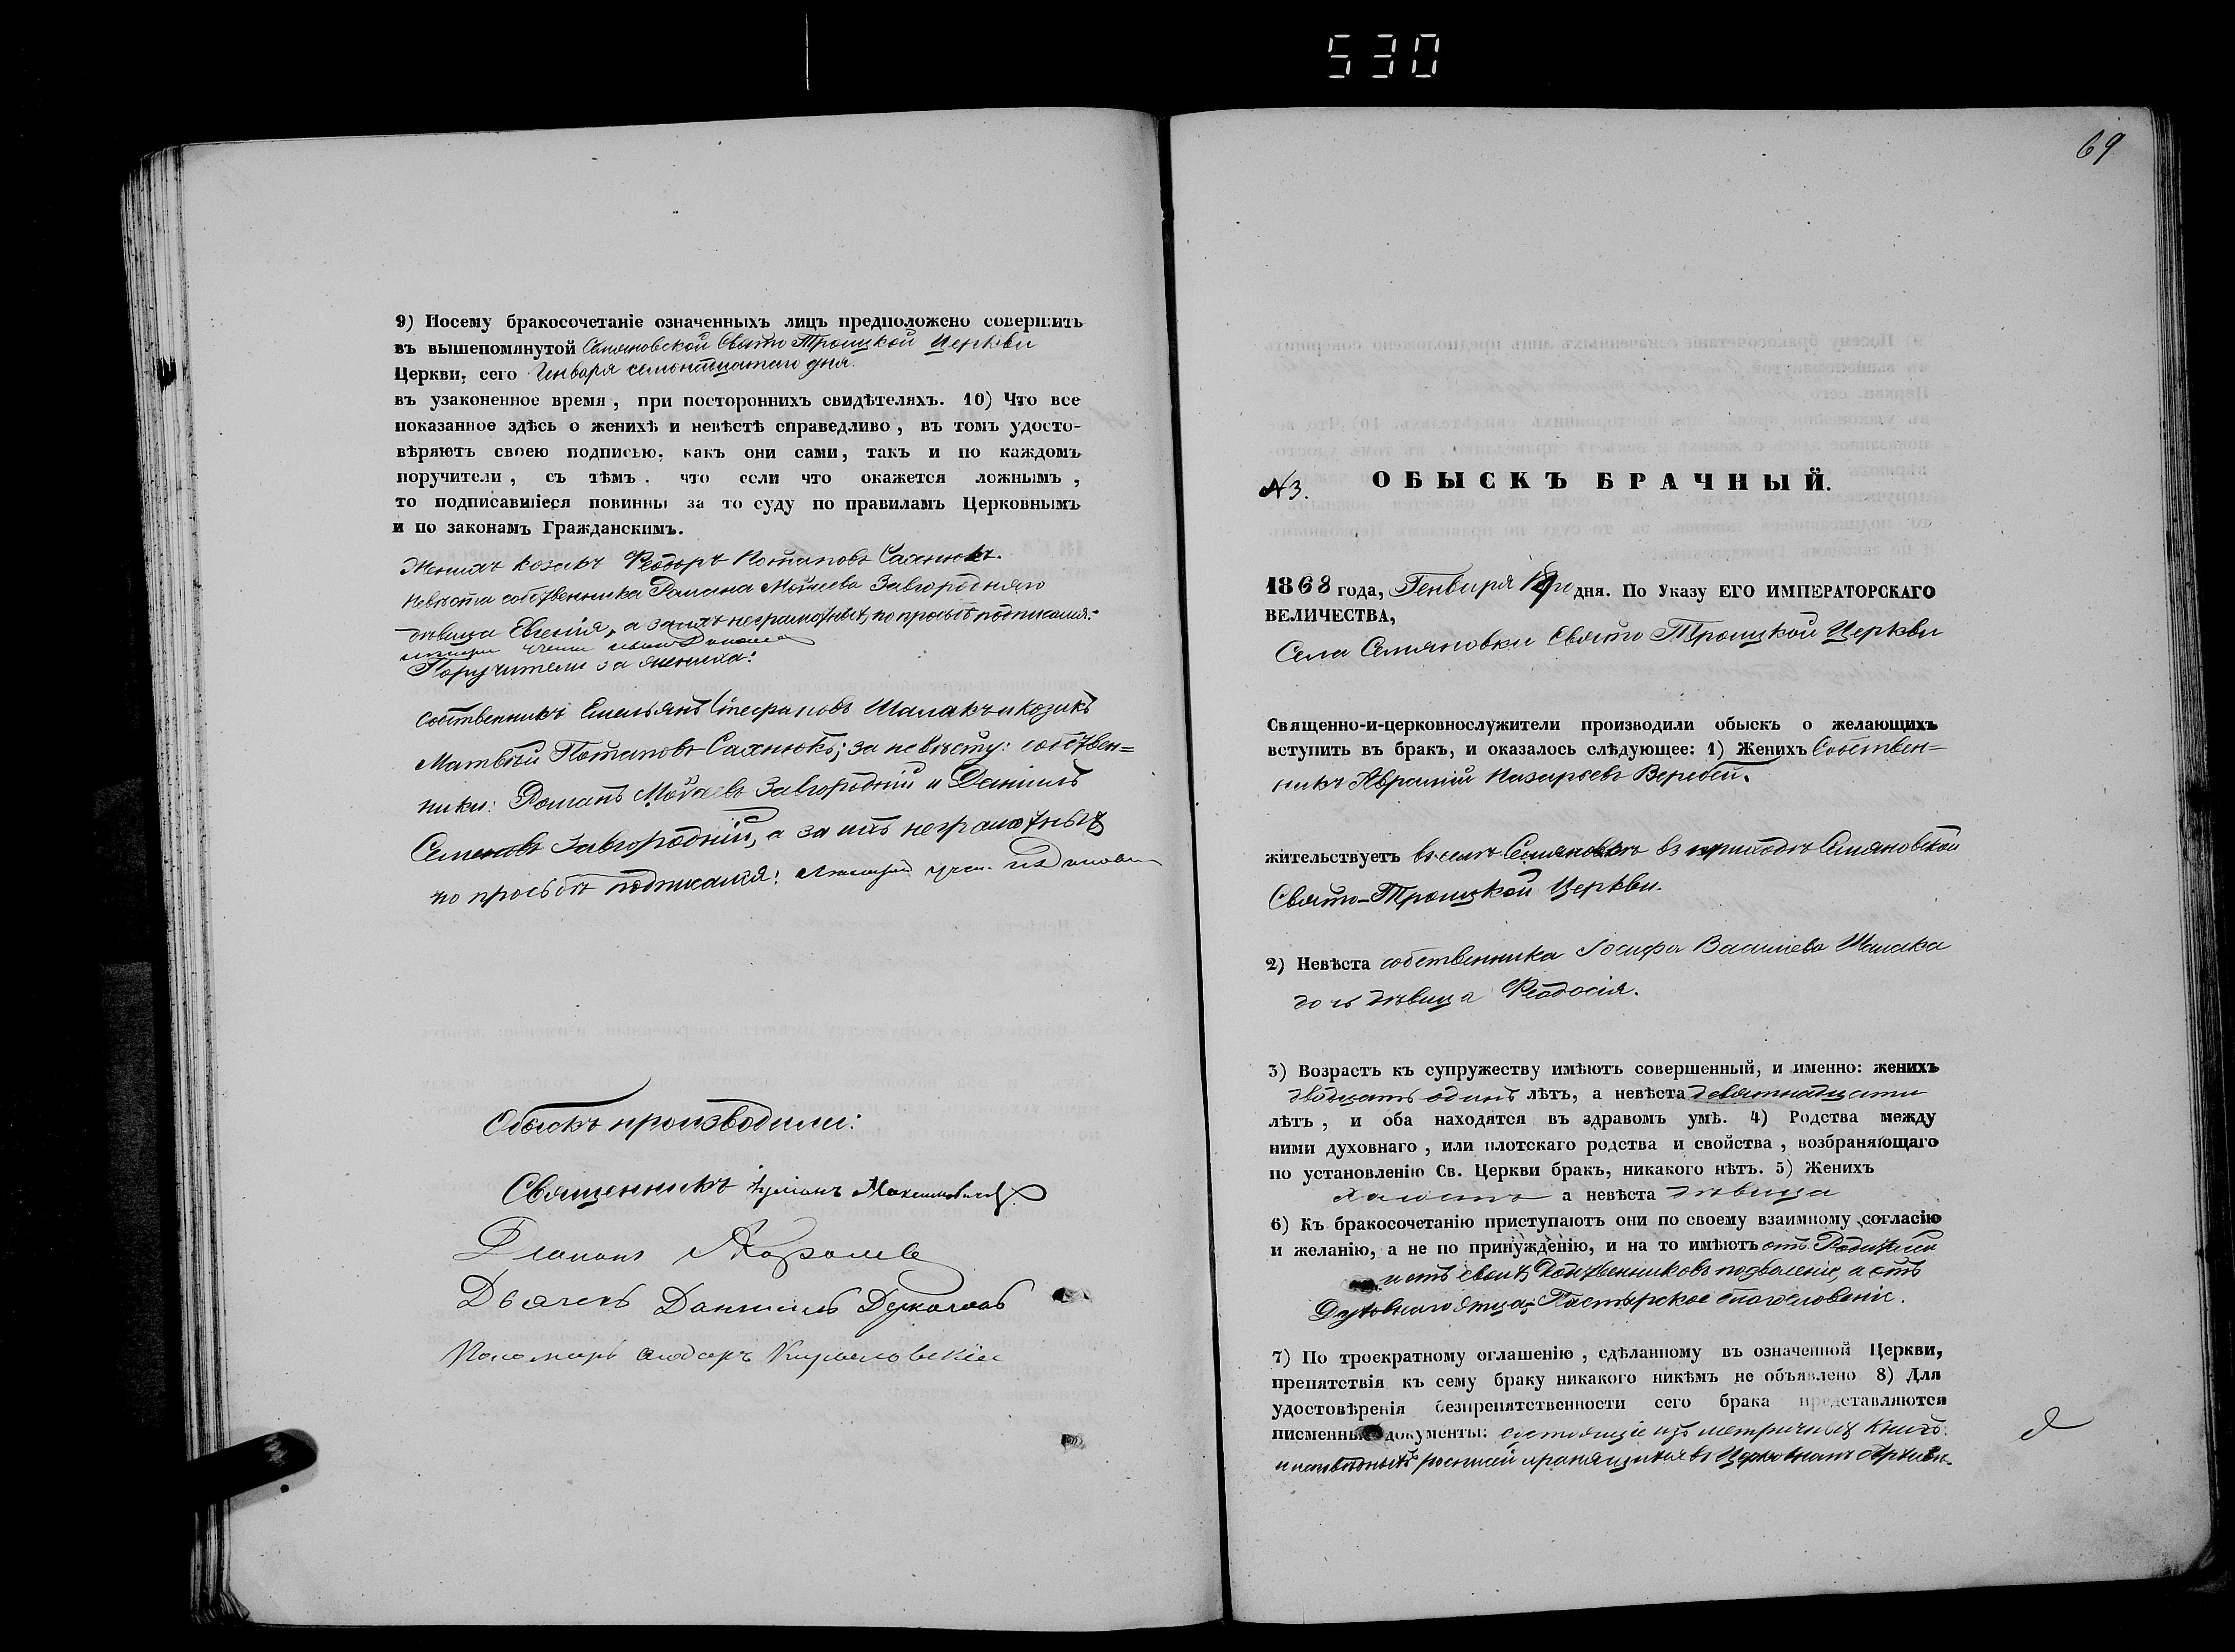 530
9) Посему бракосочетаніе означенныхъ лицъ предположено совершить
въ вышепомянутой Семяновской Свято Троицкой Церкви
Церкви, сего Генваря семьнатцатаго дня.
въ узаконенное время, при постороннихъ свидѣтеляхъ. 10) Что все
показанное здѣсь о женихѣ и невѣстѣ справедливо, въ томъ удосто-
вѣряютъ своею подписью, какъ они сами, такъ и по каждомъ
поручители, съ тѣмъ, что если что окажется ложнымъ,
то подписавшіеся повинны за то суду по правиламъ Церковнымъ
и по законамъ Гражданскимъ.
Женихъ козакъ Ѳеодоръ Потаповъ Сахнюкъ.
Невѣста собственника Романа Мойсеева Завгородняго
дѣвица Евгенія, а за нихъ неграмотныхъ, по просьбѣ подписался:
Поручители за жениха:
собственникъ Емельянъ Стефановъ Шамакъ и козакъ
Матвѣй Потаповъ Сахнюкъ; за невѣсту: собствен=
ники: Романъ Мойсеевъ Завгородній и Даніилъ
Семеновъ Завгородній, а за ихъ неграмотныхъ
по просьбѣ подписался:
Обыскъ производили:
Священникъ Іуліанъ Максимовичъ
Діаконъ
Дьячекъ Даніилъ
Пономарь
69
№ 3. ОБЫСКЪ БРАЧНЫЙ.
1868 года, Генваря дня. По Указу ЕГО ИМПЕРАТОРСКАГО
ВЕЛИЧЕСТВА,
Села Семяновки Свято Троицкой Церкви
Священно-и-церковнослужители производили обыскъ о желающихъ
вступить въ бракъ, и оказалось слѣдующее: 1) Женихъ Собствен=
никъ Аврамій Назарьевъ Веребей.
жительствуетъ въ селѣ Семяновкѣ въ приходѣ Семяновской
Свято-Троицкой Церкви.
2) Невѣста собственника Іосифа Васильева Шамака
дочь дѣвица Ѳеодосія.
3) Возрастъ къ супружеству имѣютъ совершенный, и именно: женихъ
двадцать одинъ лѣтъ, а невѣста девятнадцати
лѣтъ, и оба находятся въ здравомъ умѣ. 4) Родства между
ними духовнаго, или плотскаго родства и свойства, возбраняющаго
по установленію Св. Церкви бракъ, никакого нѣтъ. 5) Женихъ
холостъ а невѣста дѣвица
6) Къ бракосочетанію приступаютъ они по своему взаимному согласію
и желанію, а не по принужденію, и на то имѣютъ отъ Родителей
и отъ своихъ Родственниковъ позволеніе, а отъ
Духовнаго Отца: Пастырское благословеніе.
7) По троекратному оглашенію, сдѣланному въ означенной Церкви,
препятствія къ сему браку никакого никѣмъ не объявлено 8) Для
удостовѣренія безпрепятственности сего брака представляются
писменные документы: состоящіе изъ метричныхъ книгъ
и исповѣдныхъ росписей хранящихся въ Церковномъ Архивѣ.